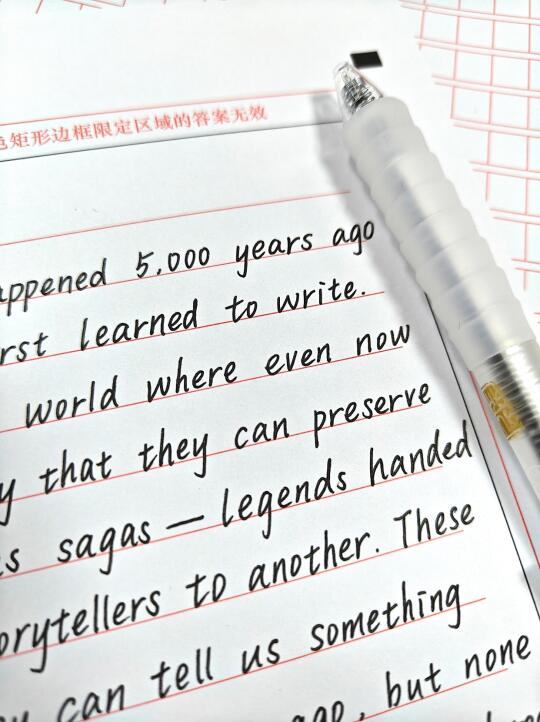 色矩形边框限定区域的答案无效
appened 5,000 years ago
rst learned to write.
world where even now
y that they can preserve
s sagas — legends handed
orytellers to another. These
y can tell us something
ago, but none